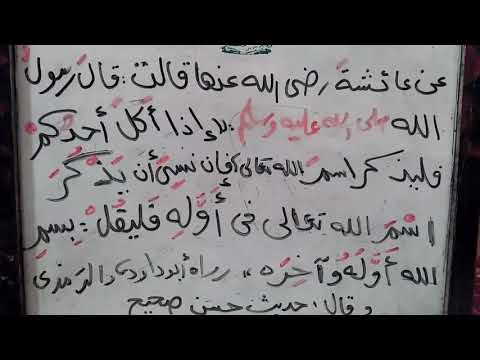 عن عائشة رضى الله عنها قالت: قال رسول
الله صلى الله عليه وسلم: «إذا أكل أحدكم
فليذكر اسم الله تعالى فإن نسى أن يذكر
اسم الله تعالى فى أوله فليقل: بسم
الله أوله وآخره» رواه أبو داود والترمذى
وقال: حديث حسن صحيح